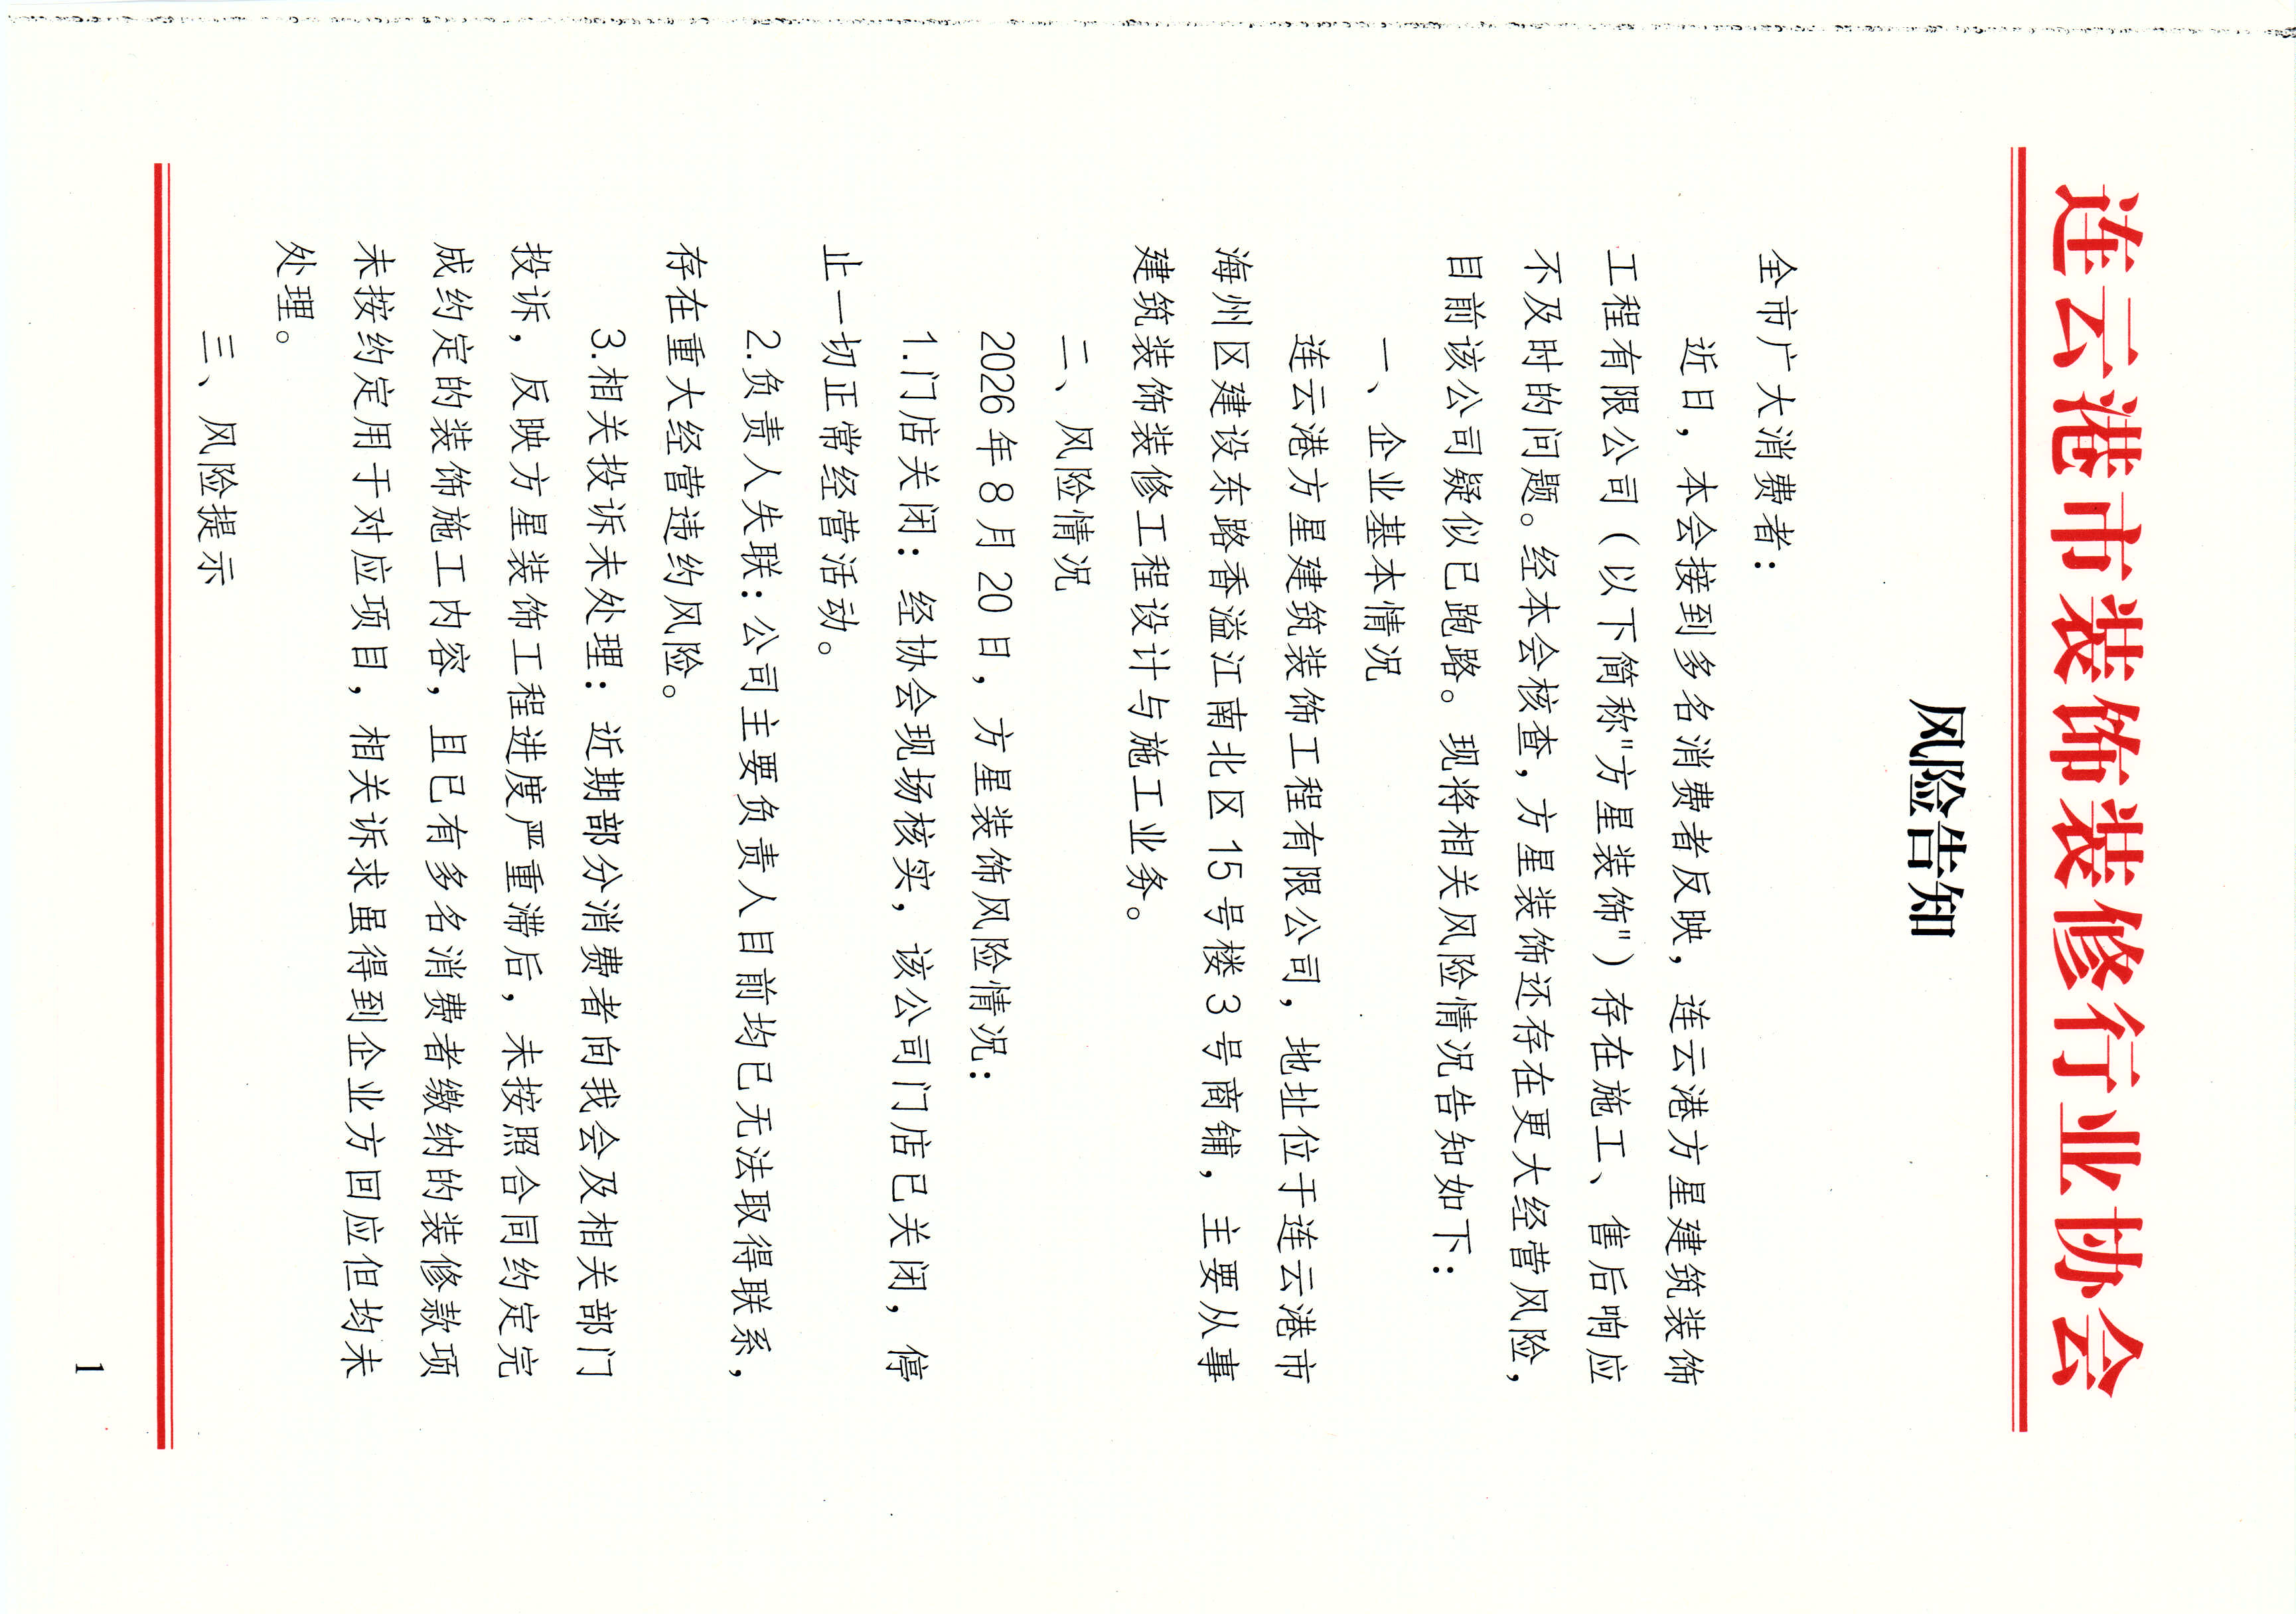 连云港市装饰装修行业协会
风险告知
全市广大消费者：
近日，本会接到多名消费者反映，连云港方星建筑装饰
工程有限公司（以下简称"方星装饰"）存在施工、售后响应
不及时的问题。经本会核查，方星装饰还存在更大经营风险，
目前该公司疑似已跑路。现将相关风险情况告知如下：
一、企业基本情况
连云港方星建筑装饰工程有限公司，地址位于连云港市
海州区建设东路香溢江南北区 15 号楼 3 号商铺，主要从事
建筑装饰装修工程设计与施工业务。
二、风险情况
2026 年 8 月 20 日，方星装饰风险情况：
1.门店关闭：经协会现场核实，该公司门店已关闭，停
止一切正常经营活动。
2.负责人失联：公司主要负责人目前均已无法取得联系，
存在重大经营违约风险。
3.相关投诉未处理：近期部分消费者向我会及相关部门
投诉，反映方星装饰工程进度严重滞后，未按照合同约定完
成约定的装饰施工内容，且已有多名消费者缴纳的装修款项
未按约定用于对应项目，相关诉求虽得到企业方回应但均未
处理。
三、风险提示
1